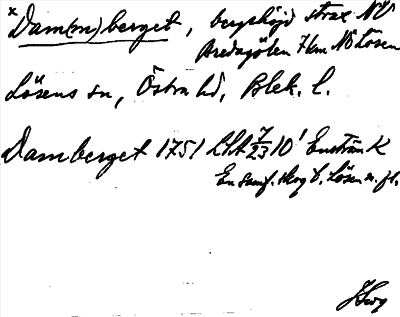 x Dam(m)berget, bergshöjd strax NV
Bredagölen 7 km NÖ Lösen
Lösens sn, Östra hd, Blek. l.
Damberget 1751 LSA 7/23 10¹ Enström K
En saml. skog t. Lösen m. fl.